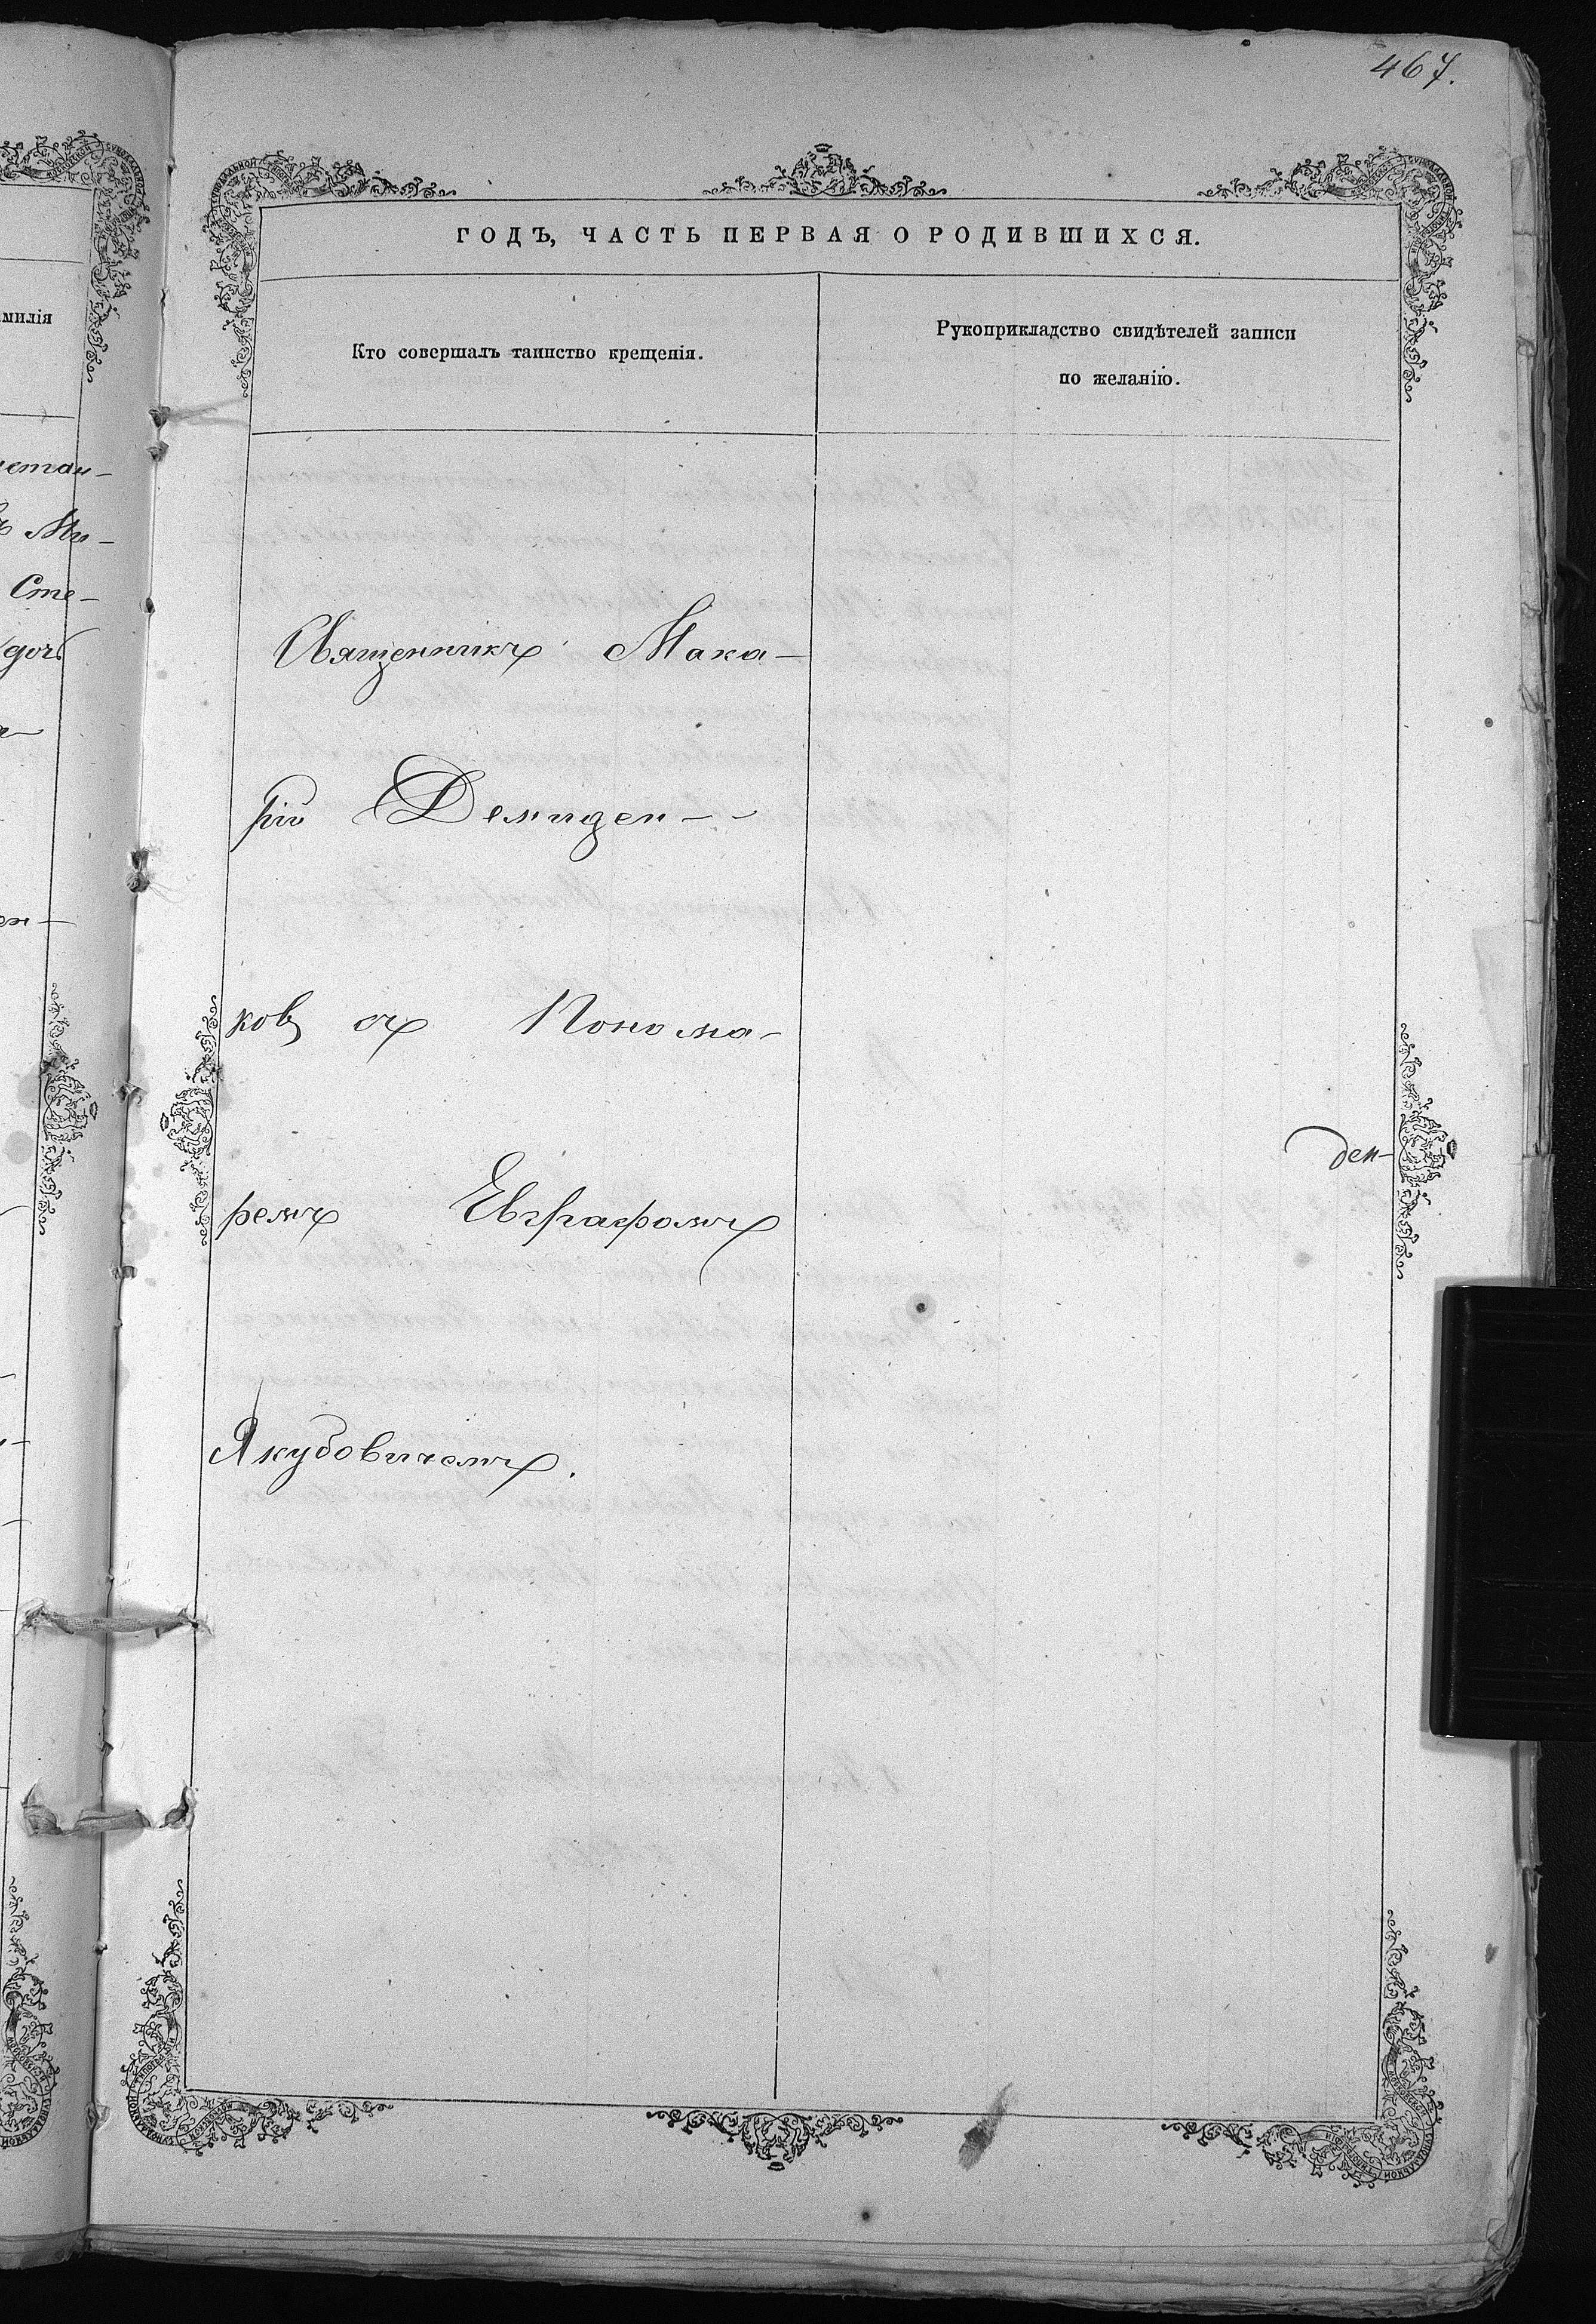 467.
ГОДЪ, ЧАСТЬ ПЕРВАЯ О РОДИВШИХСЯ.
милія
Кто совершалъ таинство крещенія.
Рукоприкладство свидѣтелей записи
по желанію.
Ми-
Сте-
Священникъ Мака-
рій Демиден-
ковъ съ Понома-
ремъ Евграфомъ
Якубовичемъ.
ден-